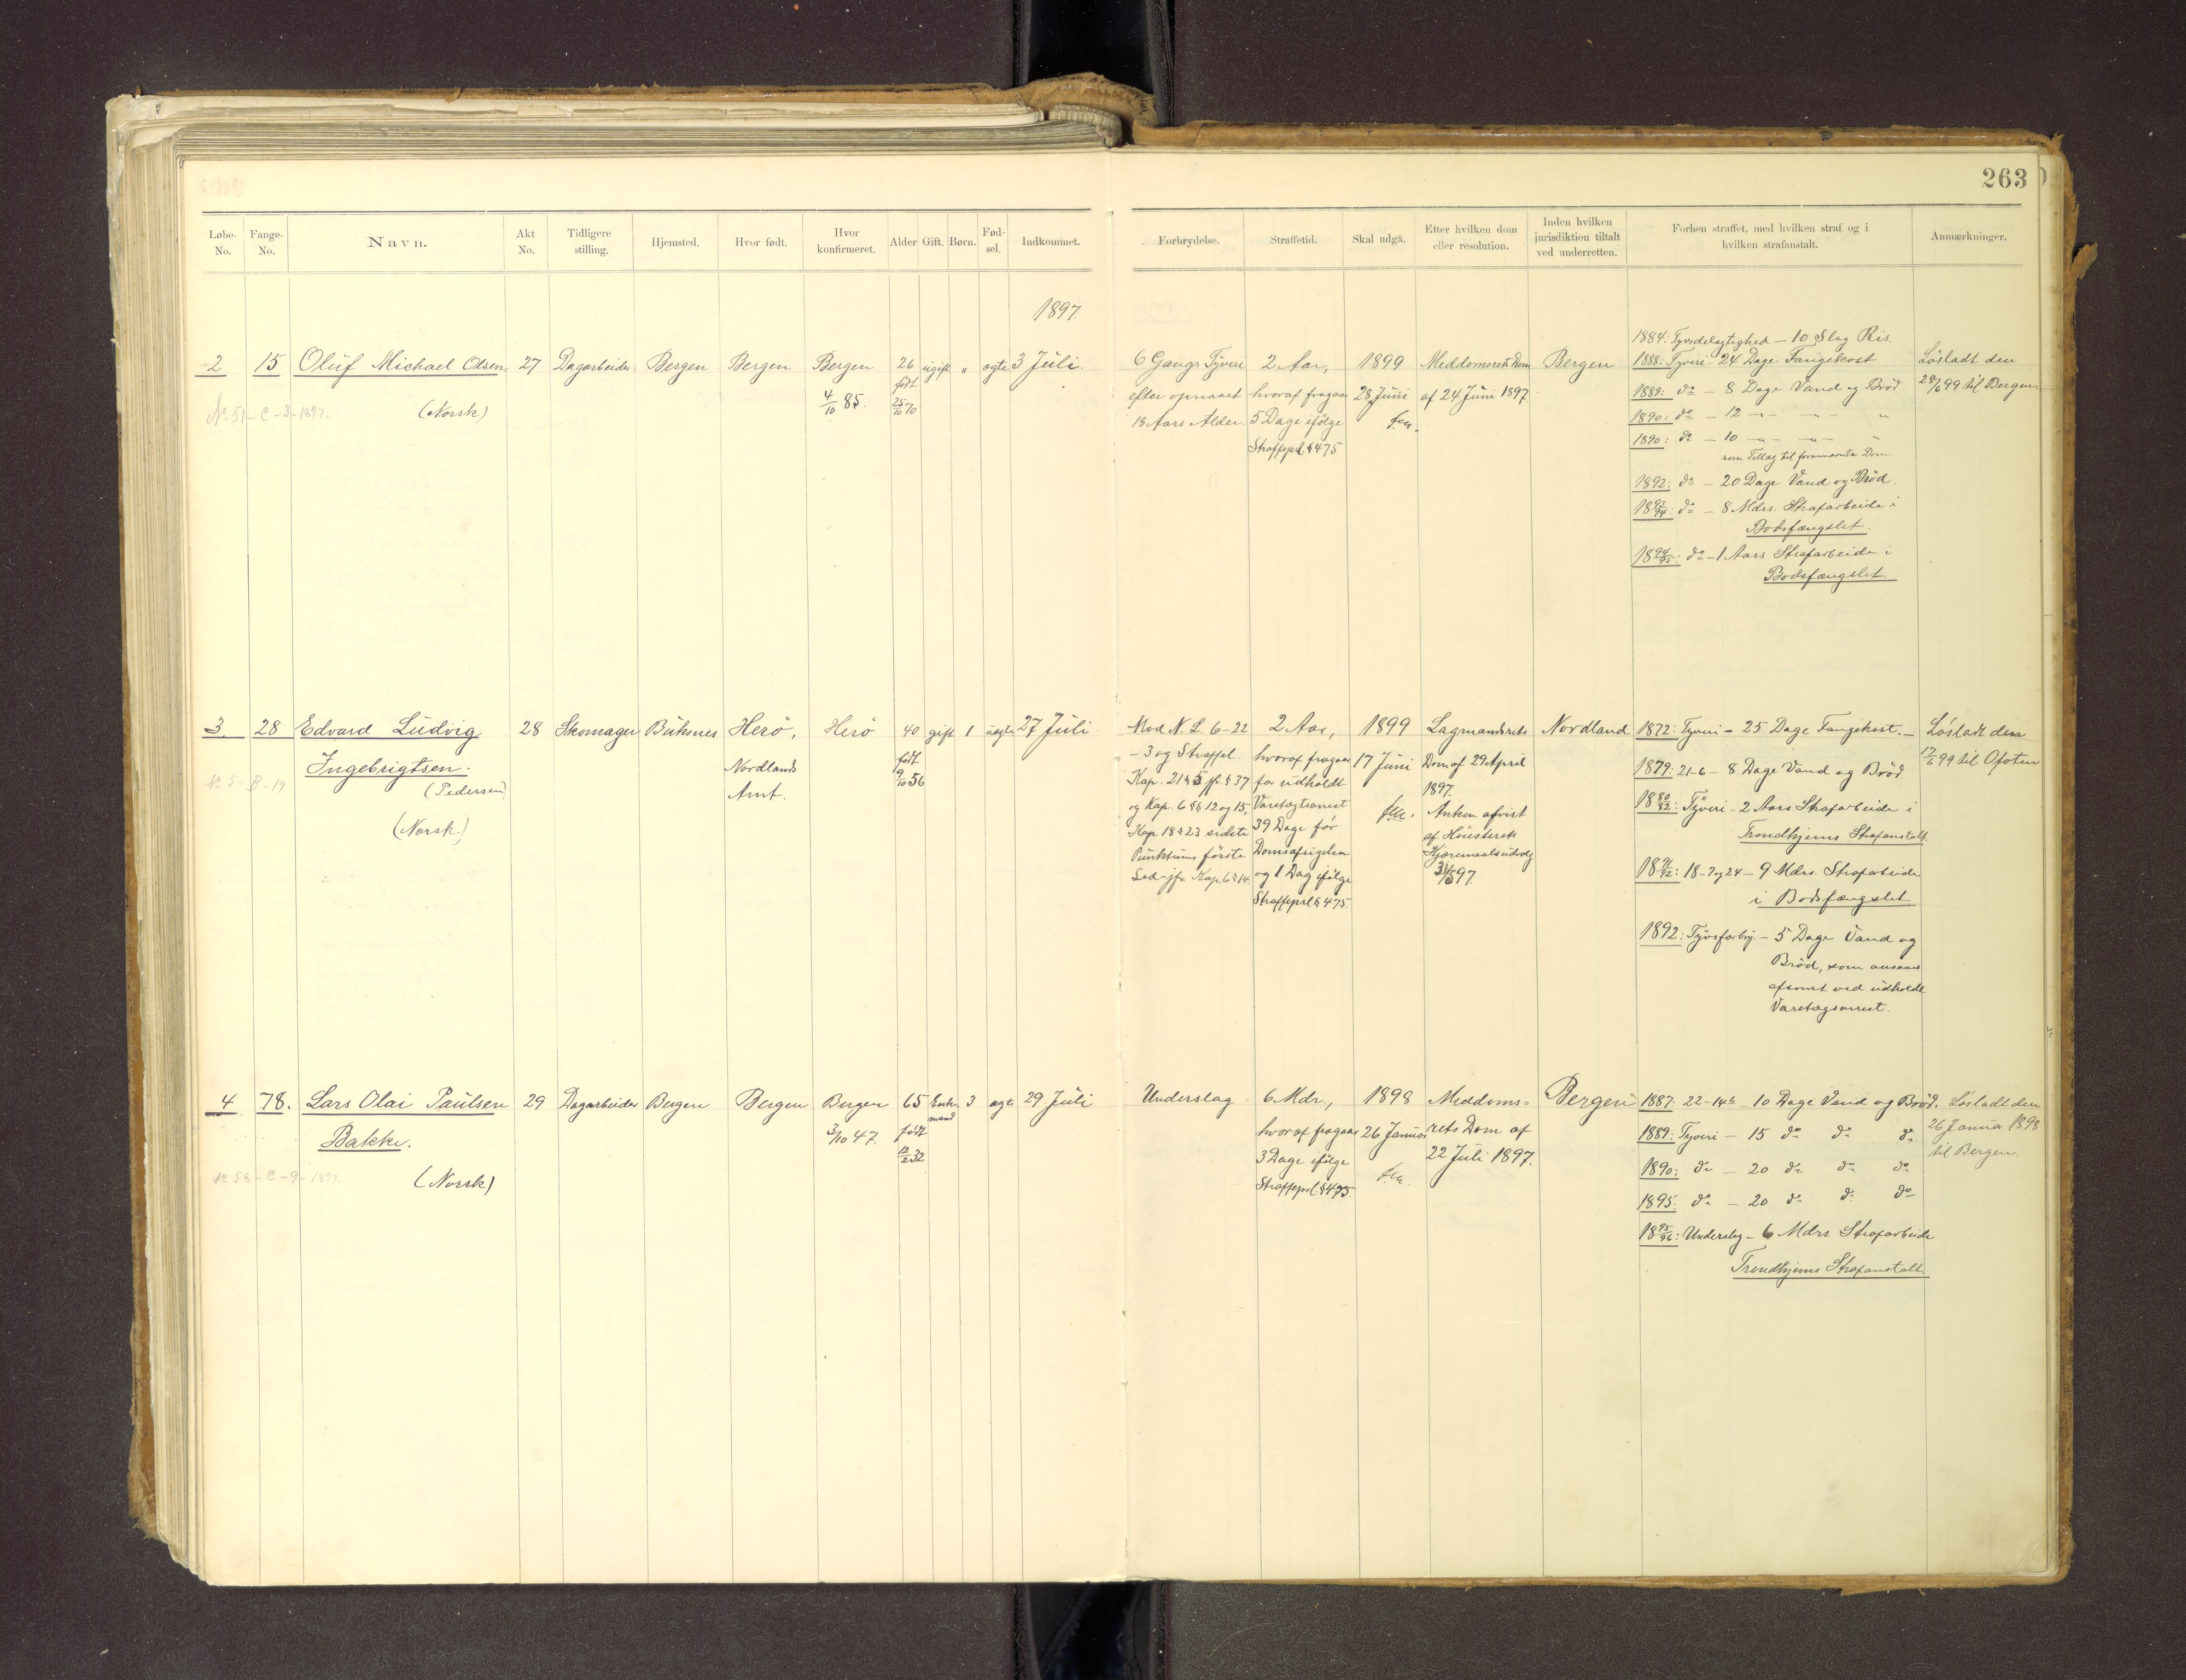 263
Løbe- No.
Fange- No.
Navn.
Akt No.
Tidligere stilling.
Hjemsted.
Hvor født.
Hvor konfirmeret.
Alder
Gift.
Børn.
Fød- sel.
Indkommet.
Forbrydelse.
Straffetid.
Skal udgå.
Efter hvilken dom eller resolution.
Inden hvilken jurisdiktion tiltalt ved underretten.
Forhen straffet, med hvilken straf og i hvilken strafanstalt.
Anmærkninger.
1897
2 15 Oluf Michael Olsen 27 Dagarbeider Bergen Bergen Bergen 26 ugift " ægte 3 Juli.
4/10 85. født
25/10 70
No 51 - C - 3 - 1897. (Norsk)
6 Gangs Tyveri
efter opnaaet
18 Aars Alder.
2 Aar,
hvoraf fragaar
5 Dage ifølge
Straffeprl § 475
1899
28 Juni
f.m.
Meddomsrets Dom
af 24 Juni 1897
Bergen
1884: Tyvsdelagtighed - 10 Slag Ris.
1888: Tyveri 24 Dage Fangekost
1889: do - 8 Dage Vand og Brød
1890: do - 12 -"- -"- "
1890: do - 10 -"- -"- "
som Tillæg til fornævnte Dom
1892: do - 20 Dage Vand og Brød.
1893/94: do - 8 Mdrs. Strafarbeide i
Bodsfængslet.
1894/95: do - 1 Aars Strafarbeide i
Bodsfængslet.
Løsladt den
28/6 99 til Bergen.
3 28 Edvard Ludvig 28 Skomager Buksnes Herö, Herö 40 gift 1 uægte 27 Juli
Ingebrigtsen.
(Pedersen)
(Norsk)
No 5 - B - 19
Nordlands
Amt.
født
9/10 56
Mod N. L. 6-22
- 3 og Straffel.
Kap. 21 § 5 jfr. § 37
og Kap. 6 §§ 12 og 15,
Kap 18 § 23 sidste
Punktums første
Led - jfr Kap. 6 § 14.
2 Aar,
hvoraf fragaar
for udholdt
Varetægtsarrest
39 Dage før
Domsafsigelsen
og 1 Dag ifølge
Straffeprl § 475.
1899
17 Juni
f.m.
Lagmandsrets
Dom af 29 April
1897.
Anken afvist
af Höiesterets
Kjæremaalsudvalg
31/5 97.
Nordland
1872: Tyveri - 25 Dage Fangekost.
1879: 21-6 - 8 Dage Vand og Bröd
1880/82: Tyveri - 2 Aars Strafarbeide i
Trondhjems Strafanstalt.
1891/92: 18-7 og 24 - 9 Mdrs. Strafarbeide
i Bodsfængslet
1892: Tyvsforbr. - 5 Dage Vand og
Bröd, som ansaaes
afsonet ved udholdt
Varetægsarrest.
Løsladt den
17/6 99 til Ofoten
4 78. Lars Olai Paulsen 29 Dagarbeider Bergen Bergen Bergen 65 Enke- mand 3 ægte 29 Juli
Bakke.
3/10 47. født
12/2 32
No 56 - C - 9 - 1897.
(Norsk)
Underslag
6 Mdr,
hvoraf fragaar
3 Dage ifølge
Straffeprl § 475.
1898
26 Januar
f.m.
Meddoms-
rets Dom af
22 Juli 1897.
Bergen
1887: 22-14 b - 10 Dage Vand og Bröd.
1889: Tyveri - 15 do do do
1890: do - 20 do do do
1895: do - 20 do do do
1895/96: Underslag - 6 Mdrs. Strafarbeide
Trondhjems Strafanstalt.
Løsladt den
26 Januar 1898
til Bergen.